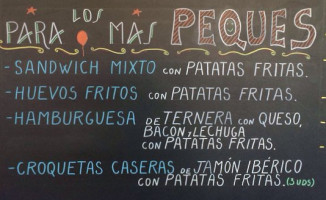 PARA LOS MÁS PEQUES
-SANDWICH MIXTO CON PATATAS FRITAS.
-HUEVOS FRITOS CON PATATAS FRITAS.
-HAMBURGUESA DE TERNERA CON QUESO,
BACON, LECHUGA
CON PATATAS FRITAS.
-CROQUETAS CASERAS DE JAMÓN IBÉRICO
CON PATATAS FRITAS. (5UDS)